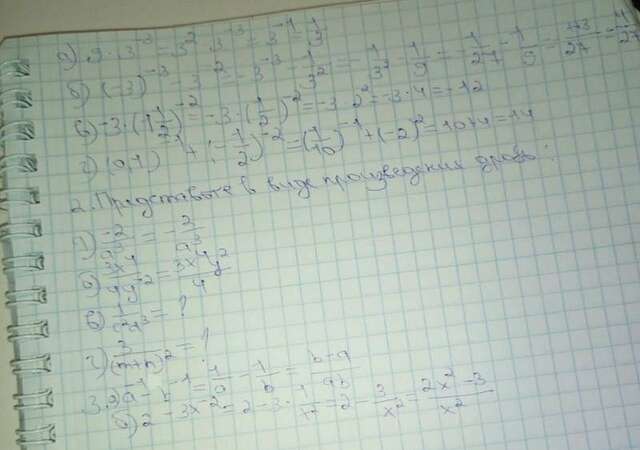 а) 9·3⁻³ = 3²·3⁻³ = 3⁻¹ = 1/3
б) (-3)⁻³ - 3⁻² = -3⁻³ - 1/3² = - 1/3³ - 1/9 = - 1/27 - 1/9 =
в) -3·(1/2)⁻² = -3·(1/2)⁻² = -3·2² = -3·4 = -12
г) (0,1)⁻¹ + (-1/2)⁻² = (1/10)⁻¹ + (-2)² = 10+4 = 14
2. Представьте в виде произведения дробь:
3x⁴/4y⁻² = 3x⁴y²/4
в) = ?
г) 3/(m+n)² = ?
3. а) a⁻¹ - b⁻¹ = 1/a - 1/b = b-a/ab
б) 2 - 3x⁻² = 2 - 3· 1/x² = 2 - 3/x² = 2x²-3/x²